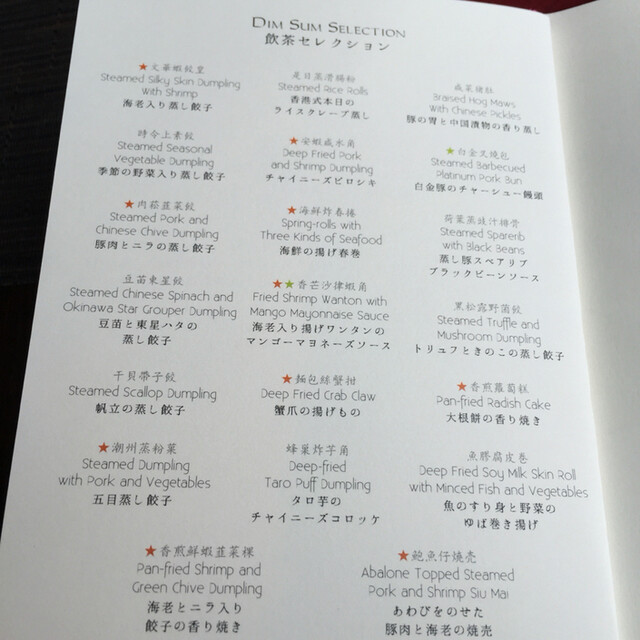 DIM SUM SELECTION
飲茶セレクション
★文華蝦餃皇
Steamed Silky Skin Dumpling
with Shrimp
海老入り蒸し餃子
時令上素餃
Steamed Seasonal
Vegetable Dumpling
季節の野菜入り蒸し餃子
★肉茄韮菜餃
Steamed Pork and
Chinese Chive Dumpling
豚肉とニラの蒸し餃子
豆苗東星餃
Steamed Chinese Spinach and
Okinawa Star Grouper Dumpling
豆苗と東星ハタの
蒸し餃子
干貝帶子餃
Steamed Scallop Dumpling
帆立の蒸し餃子
★潮州蒸粉菜
Steamed Dumpling
with Pork and Vegetables
五目蒸し餃子
是日蒸滑腸粉
Steamed Rice Rolls
香港式本日の
ライスクレープ蒸し
★安蝦咸水角
Deep Fried Pork
and Shrimp Dumpling
チャイニーズピロシキ
★海鮮炸春捲
Spring-rolls with
Three Kinds of Seafood
海鮮の揚げ春巻
★★香芒沙律蝦角
Fried Shrimp Wanton with
Mango Mayonnaise Sauce
海老入り揚げワンタンの
マンゴーマヨネーズソース
★麵包絲蟹拑
Deep Fried Crab Claw
蟹爪の揚げもの
蜂巢炸芋角
Deep-fried
Taro Puff Dumpling
タロ芋の
チャイニーズコロッケ
咸菜猪肚
Braised Hog Maws
with Chinese Pickles
豚の胃と中国漬物の香り蒸し
★白金叉燒包
Steamed Barbecued
Platinum Pork Bun
白金豚のチャーシュー饅頭
荷葉蒸豉汁排骨
Steamed Sparerib
with Black Beans
蒸し豚スペアリブ
ブラックビーンソース
黒松露野菌餃
Steamed Truffle and
Mushroom Dumpling
トリュフときのこの蒸し餃子
★香煎蘿蔔糕
Pan-fried Radish Cake
大根餅の香り焼き
魚膠腐皮卷
Deep Fried Soy Milk Skin Roll
with Minced Fish and Vegetables
魚のすり身と野菜の
ゆば巻き揚げ
★香煎鮮蝦韮菜粿
Pan-fried Shrimp and
Green Chive Dumpling
海老とニラ入り
餃子の香り焼き
★鮑魚仔燒売
Abalone Topped Steamed
Pork and Shrimp Siu Mai
あわびをのせた
豚肉と海老の焼売